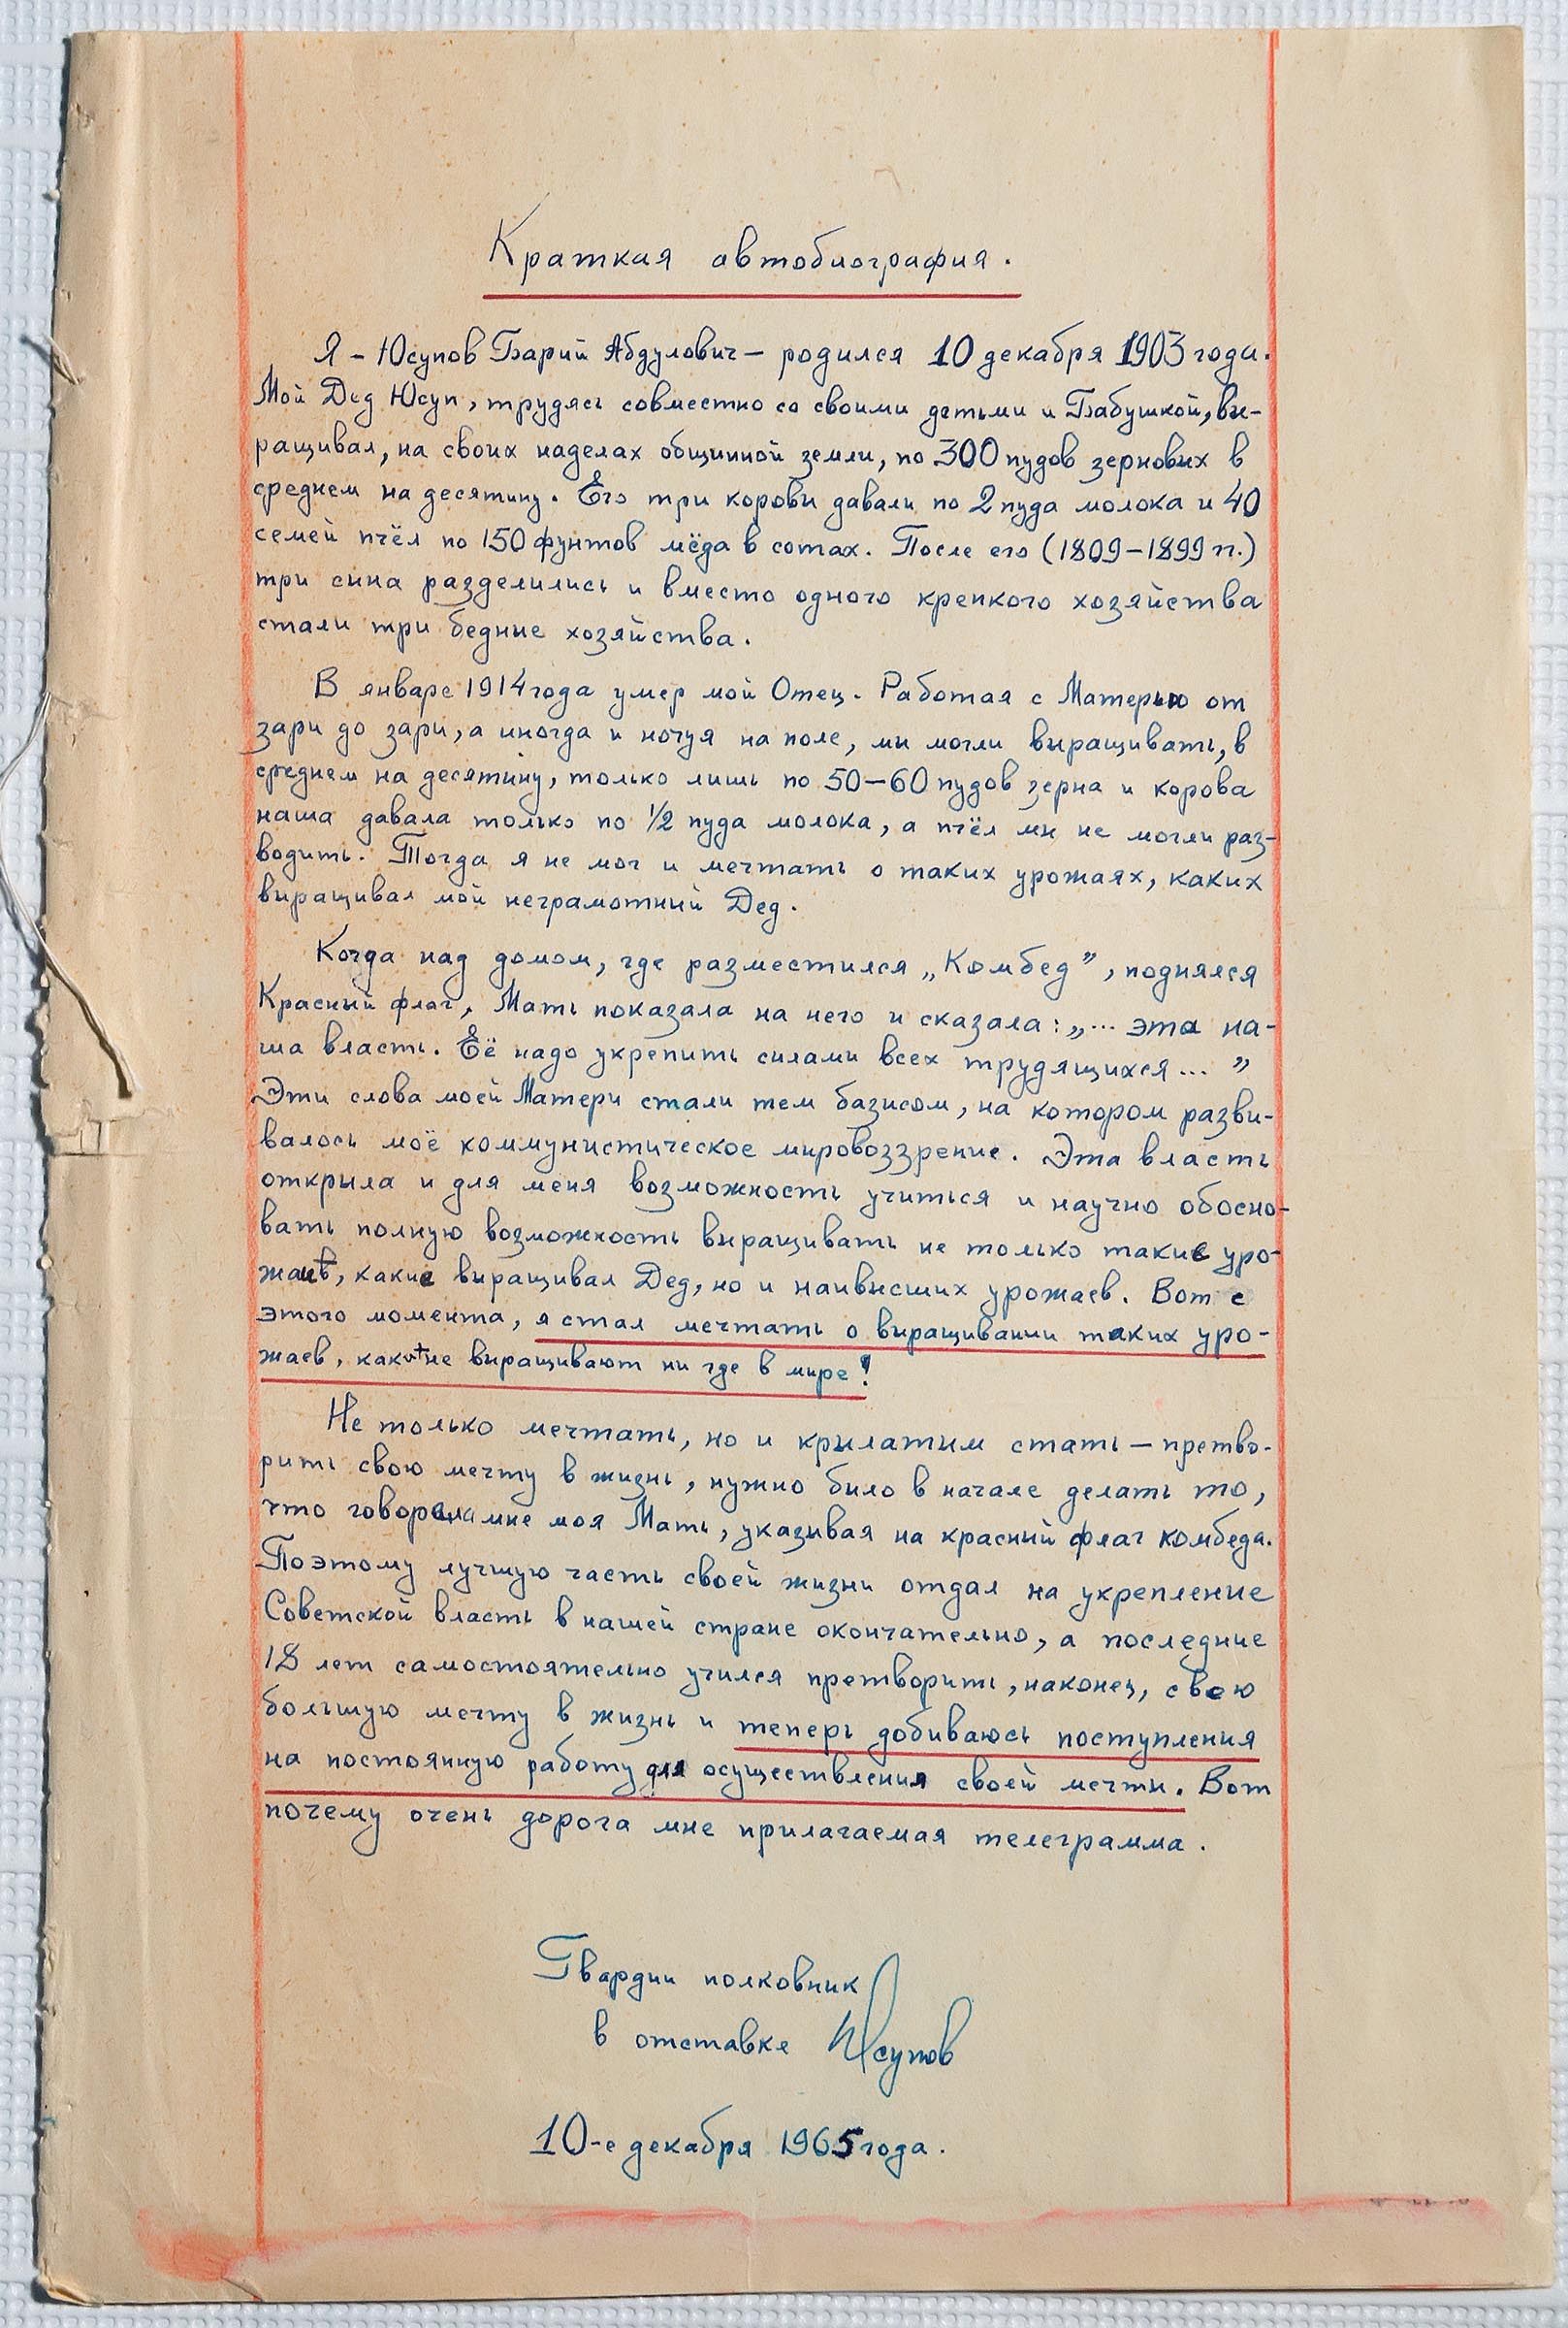 Краткая автобиография.
Я – Юсупов Барий Абдулович – родился 10 декабря 1903 года.
Мой Дед Юсуп, трудясь совместно со своими детьми и Бабушкой, вы-
ращивал, на своих наделах общинной земли, по 300 пудов зерновых в
среднем на десятину. Его три коровы давали по 2 пуда молока и 40
семей пчёл по 150 фунтов мёда в сотах. После его (1809–1899 гг.)
три сына разделились и вместо одного крепкого хозяйства
стали три бедные хозяйства.
В январе 1914 года умер мой Отец. Работая с Матерью от
зари до зари, а иногда и ночуя на поле, мы могли выращивать, в
среднем на десятину, только лишь по 50–60 пудов зерна и корова
наша давала только по 1/2 пуда молока, а пчёл мы не могли раз-
водить. Тогда я не мог и мечтать о таких урожаях, каких
выращивал мой неграмотный Дед.
Когда над домом, где разместился „Комбед”, поднялся
Красный флаг, Мать показала на него и сказала: „... эта на-
ша власть. Её надо укрепить силами всех трудящихся... ”
Эти слова моей Матери стали тем базисом, на котором разви-
валось моё коммунистическое мировоззрение. Эта власть
открыла и для меня возможность учиться и научно обосно-
вать полную возможность выращивать не только такие уро-
жаи, какие выращивал Дед, но и наивысших урожаев. Вот с
этого момента, я стал мечтать о выращивании таких уро-
жаев, какие выращивают ни где в мире!
Не только мечтать, но и крылатым стать – претво-
рить свою мечту в жизнь, нужно было в начале делать то,
что говорила мне моя Мать, указывая на красный флаг комбеда.
Поэтому лучшую часть своей жизни отдал на укрепление
Советской власть в нашей стране окончательно, а последние
18 лет самостоятельно учился претворить, наконец, свою
большую мечту в жизнь и теперь добиваюсь поступления
на постоянную работу для осуществления своей мечты. Вот
почему очень дорога мне прилагаемая телеграмма.
Гвардии полковник
в отставке Юсупов
10-е декабря 1965 года.